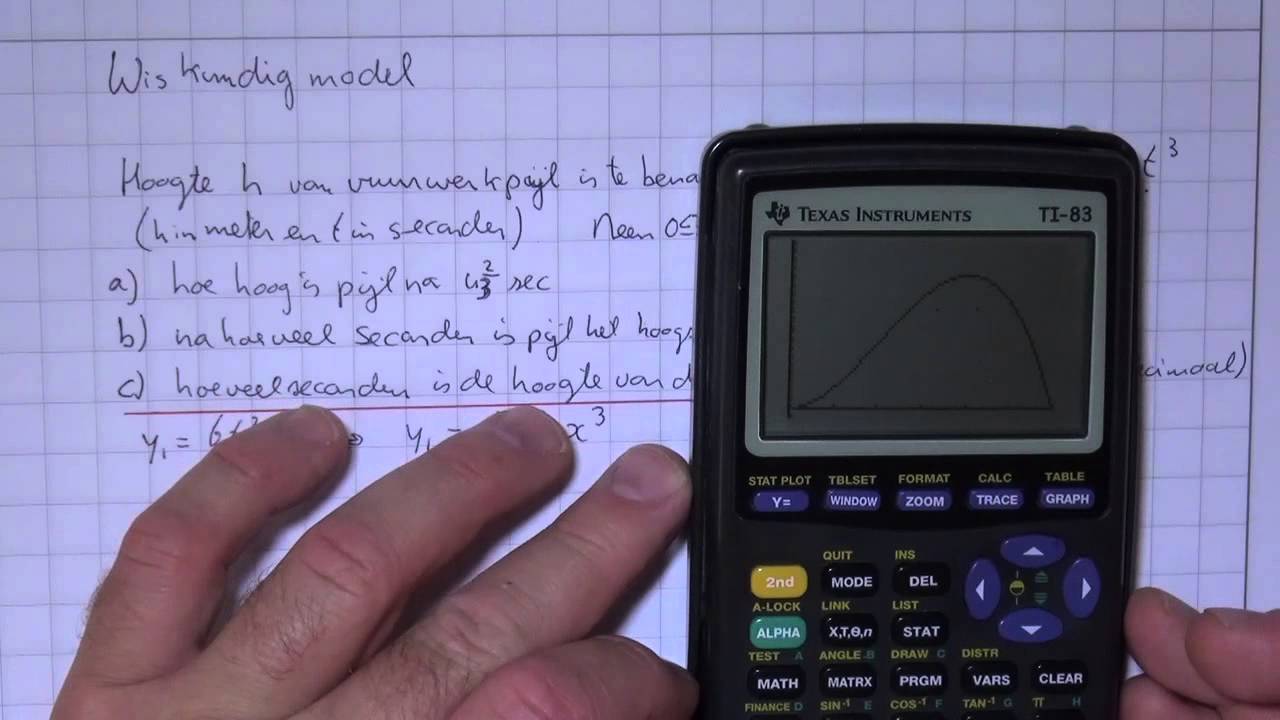 Wiskundig model
Hoogte h van vuurwerkpijl is te bena t³
(h in meter en t in seconden) Neem 0≤
a) hoe hoog is pijl na 4 2/3 sec
b) na hoeveel seconden is pijl het hoogs
c) hoeveel seconden is de hoogte van d cimaal)
y₁ = 6t² ⇒ y₁ = x³
TEXAS INSTRUMENTS TI-83
STAT PLOT TBLSET FORMAT CALC TABLE
Y= WINDOW ZOOM TRACE GRAPH
QUIT INS
2nd MODE DEL
A-LOCK LINK LIST
ALPHA X,T,Θ,n STAT
TEST A ANGLE B DRAW C DISTR
MATH MATRX PRGM VARS CLEAR
FINANCE D SIN⁻¹ E COS⁻¹ F TAN⁻¹ G π H